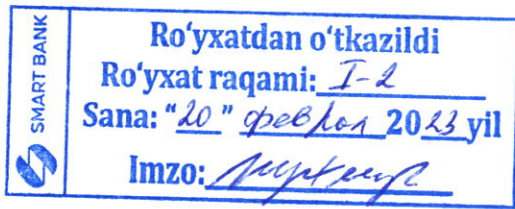 SMART BANK
Ro'yxatdan o'tkazildi
Ro'yxat raqami: I-2
Sana: "20" феврал 2023 yil
Imzo: